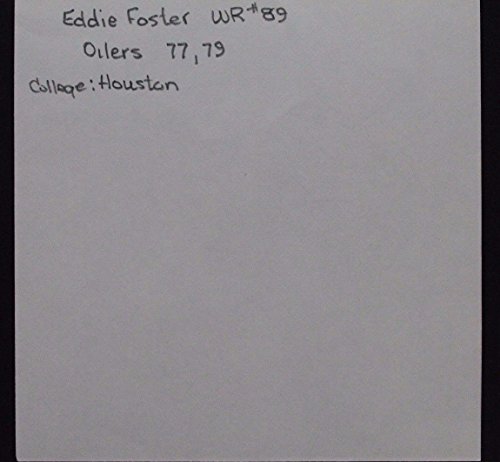 Eddie Foster WR #89
Oilers 77, 79
College: Houston